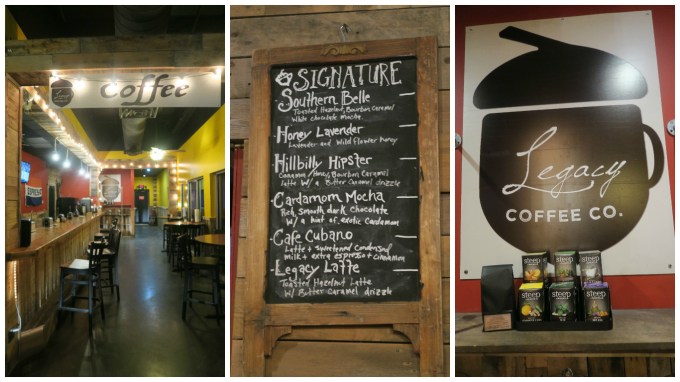 Coffee
ESPRESSO
SIGNATURE
Southern Belle
Toasted Hazelnut, Bourbon Caramel
White chocolate Mocha
Honey Lavender
Lavender and Wild flower honey
Hillbilly Hipster
Cinnamon, Honey, Bourbon Caramel
latte W/ a Butter Caramel drizzle
Cardamom Mocha
Rich, smooth dark chocolate
W/ a hint of exotic Cardamom
Cafe Cubano
Latte + sweetened condensed
milk + extra espresso + cinnamon
Legacy Latte
Toasted Hazelnut Latte
W/ Butter Caramel drizzle
Legacy
COFFEE CO.
steep steep steep
steep steep steep